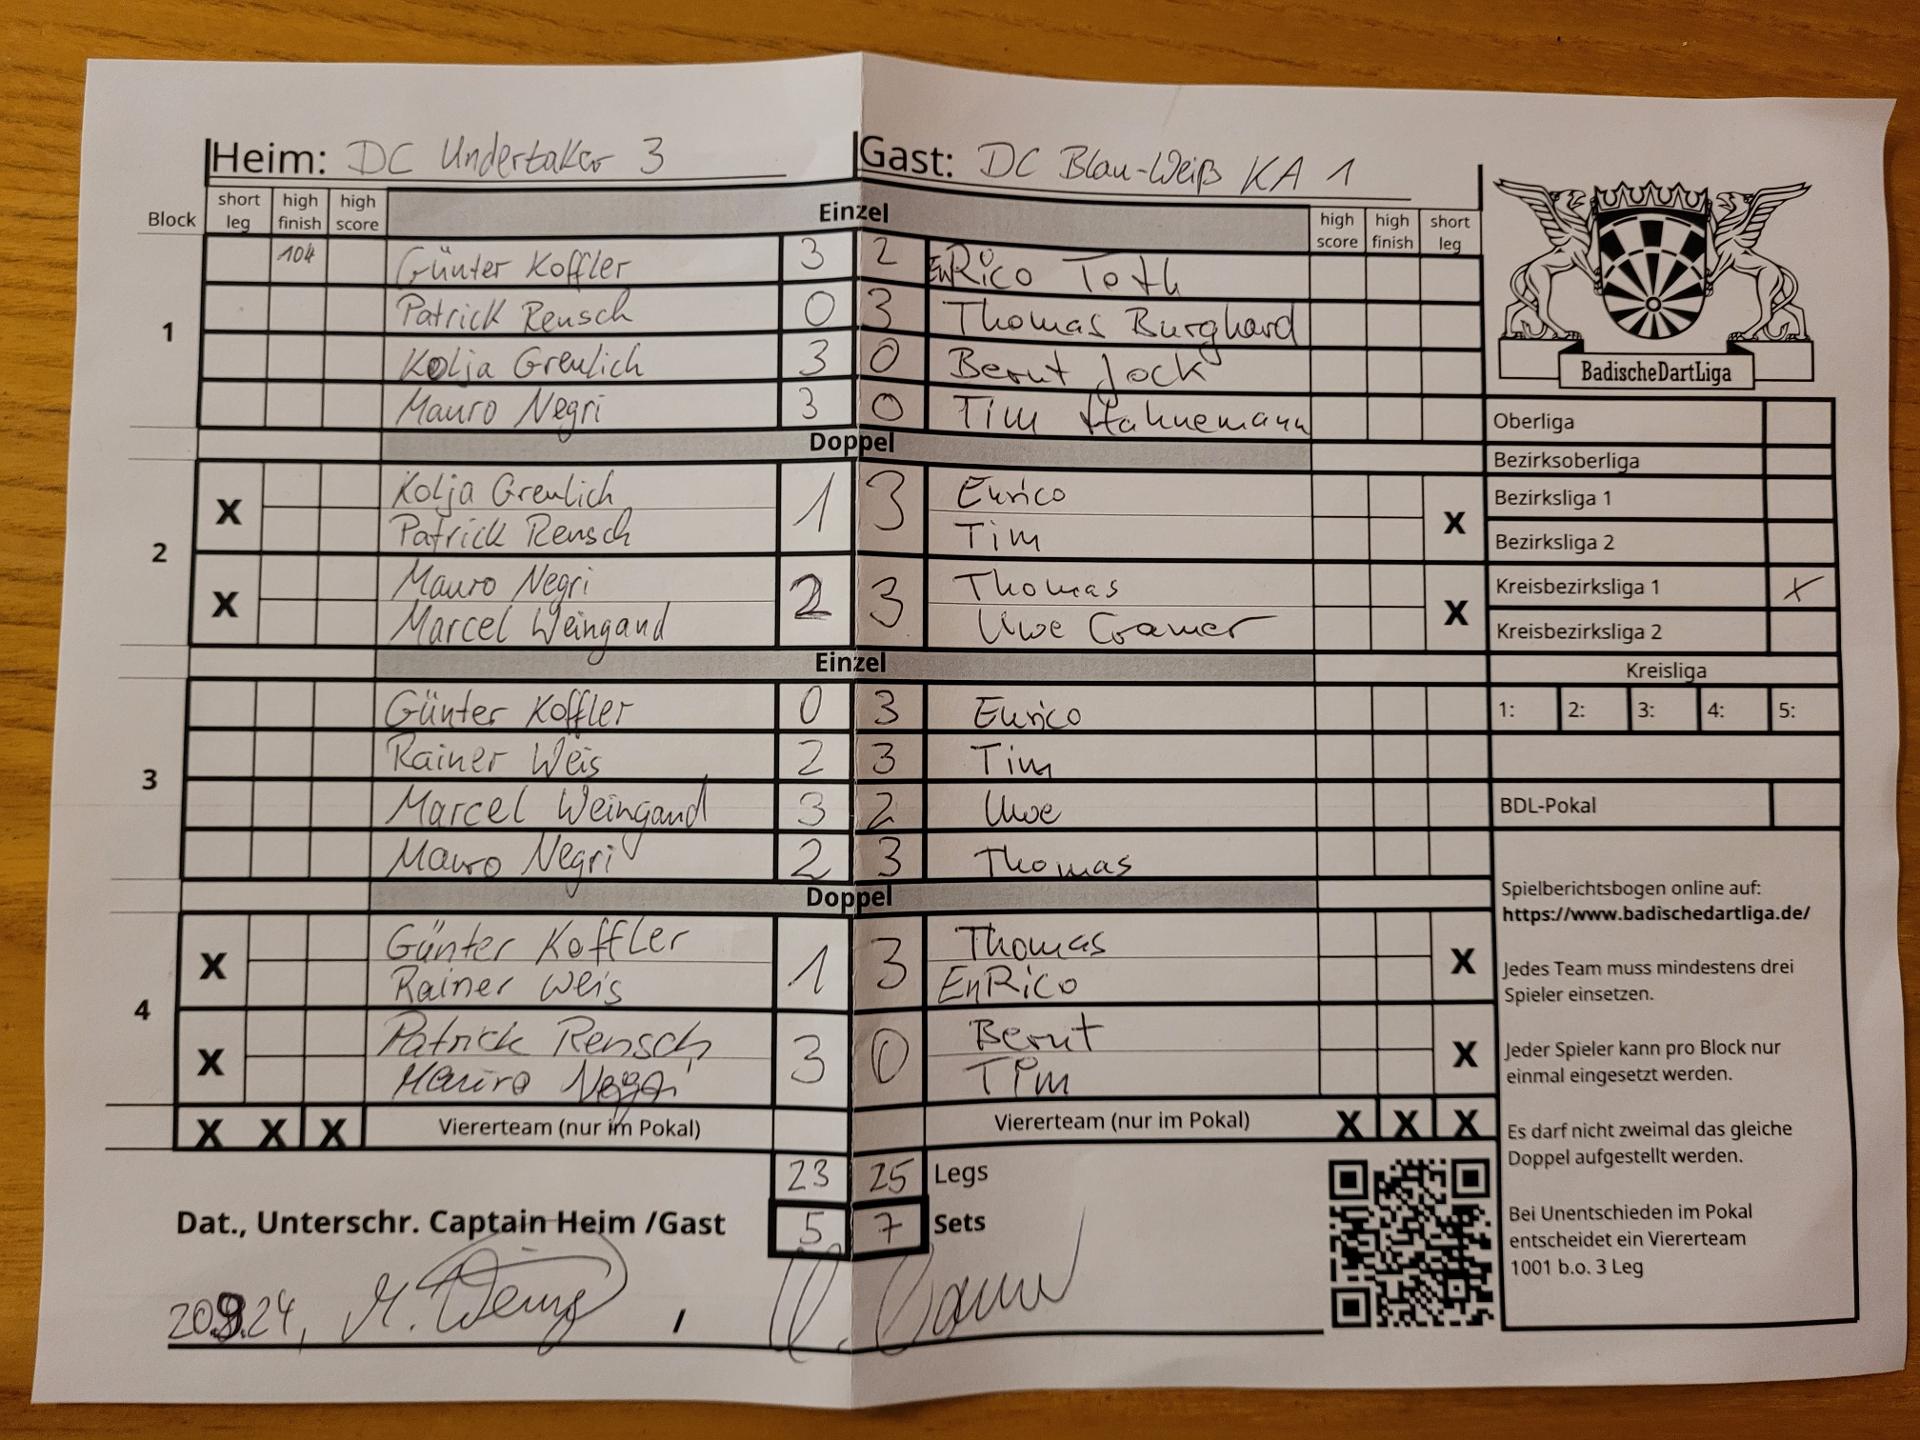 Heim: DC Undertaker 3 Gast: DC Blau-Weiß KA 1
Block short leg high finish high score Einzel high score high finish short leg
1
104 Günter Koffler 3 2 EnRico Toth
Patrick Rensch 0 3 Thomas Burghard
Kolja Greulich 3 0 Bernt Jock
Mauro Negri 3 0 Tim Hahnemann
Doppel
2
X Kolja Greulich 1 3 Enrico X
Patrick Rensch Tim
X Mauro Negri 2 3 Thomas X
Marcel Weingand Uwe Cramer
Einzel
3
Günter Koffler 0 3 Enrico
Rainer Weis 2 3 Tim
Marcel Weingand 3 2 Uwe
Mauro Negri 2 3 Thomas
Doppel
4
X Günter Koffler 1 3 Thomas X
Rainer Weis EnRico
X Patrick Rensch 3 0 Bernt X
Mauro Negri Tim
X X X Viererteam (nur im Pokal) Viererteam (nur im Pokal) X X X
23 25 Legs
Dat., Unterschr. Captain Heim /Gast 5 7 Sets
20.9.24, /
BadischeDartLiga
Oberliga
Bezirksoberliga
Bezirksliga 1
Bezirksliga 2
Kreisbezirksliga 1 X
Kreisbezirksliga 2
Kreisliga
1: 2: 3: 4: 5:
BDL-Pokal
Spielberichtsbogen online auf:
https://www.badischedartliga.de/
Jedes Team muss mindestens drei
Spieler einsetzen.
Jeder Spieler kann pro Block nur
einmal eingesetzt werden.
Es darf nicht zweimal das gleiche
Doppel aufgestellt werden.
Bei Unentschieden im Pokal
entscheidet ein Viererteam
1001 b.o. 3 Leg